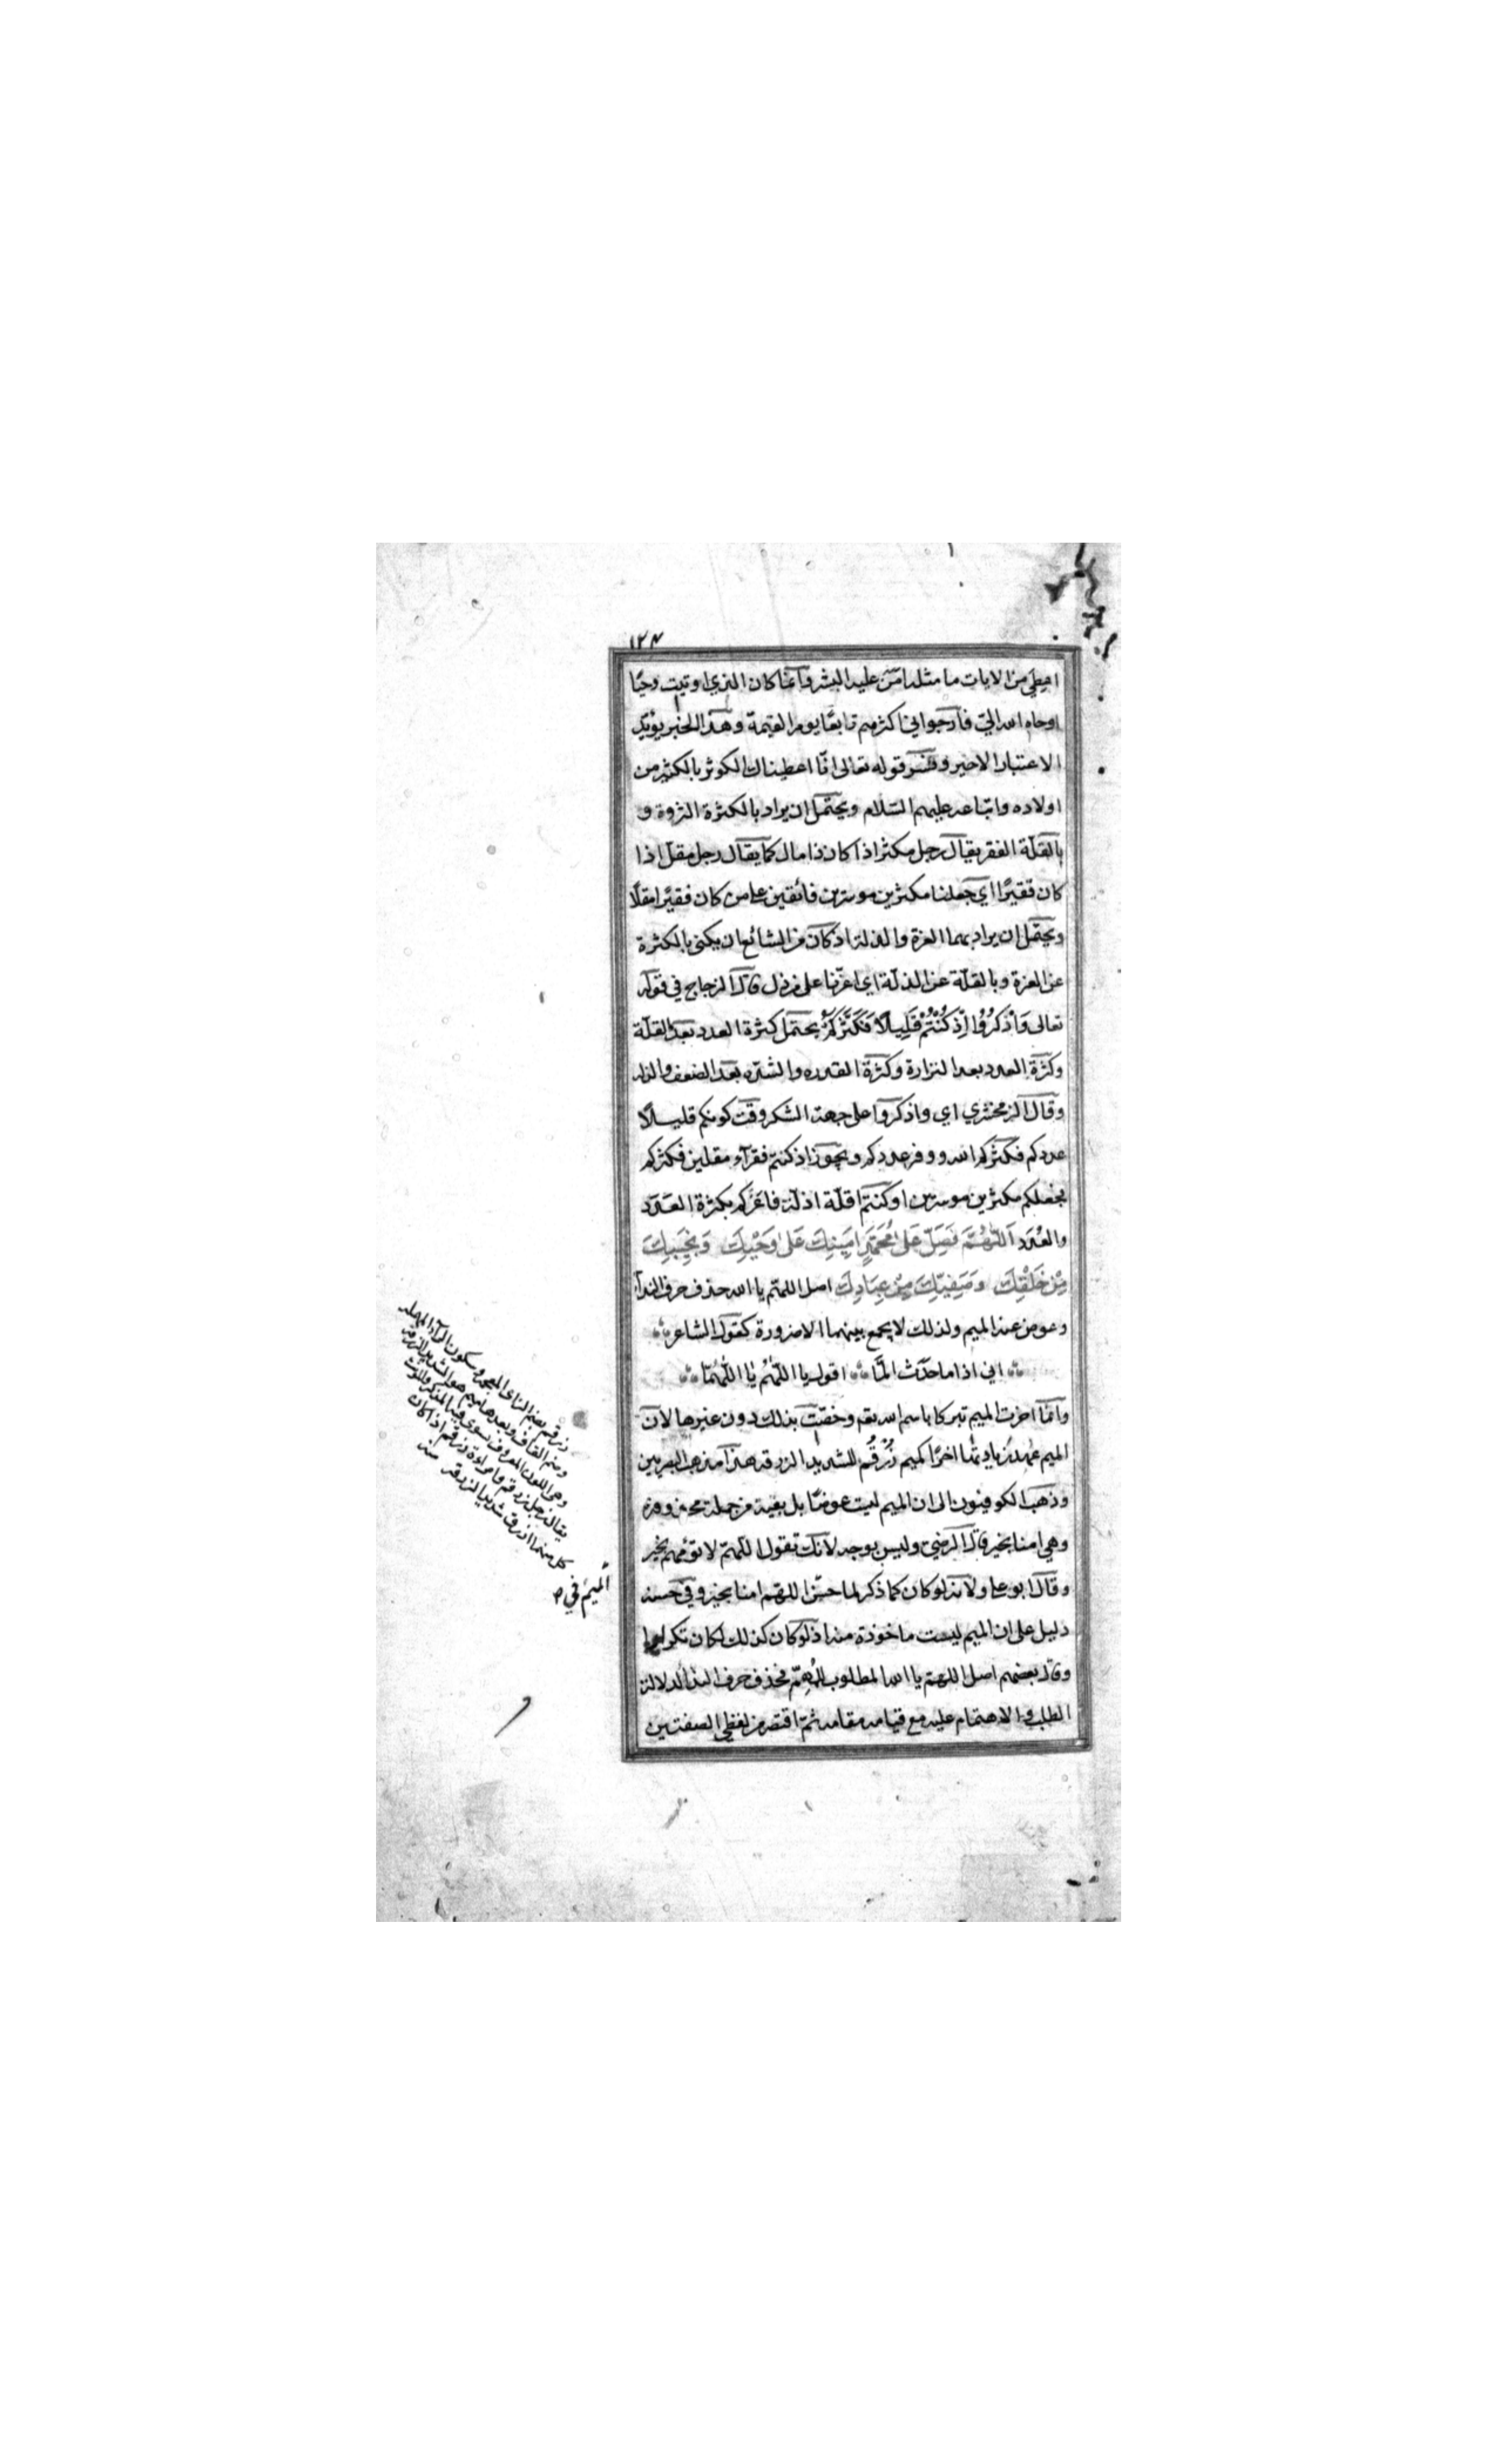 ١٢٤
اعطي من الايات ما مثله امن عليه البشر وانما كان الذي اوتيت وحيًا
اوحاه الله اليّ فارجوا اني اكثرهم تابعًا يوم القيمة وهذا الخبر يؤيد
الاعتبار الاخير وفسر قوله تعالى انّا اعطيناك الكوثر بالكثير من
اولاده واتباعه عليهم السّلام ويحتمل ان يراد بالكثرة الثروة و
بالقلّة الفقر يقال رجل مكثر اذا كان ذا مال كما يقال رجل مقلّ اذا
كان فقيرًا اي جعلنا مكثرين موسرين فائقين على من كان فقيرًا مقلّا
ويحتمل ان يراد بهما العزة والذلة اذ كان من الشائع ان يكنى بالكثرة
عن العزة وبالقلّة عن الذلّة اي اعزّنا على من ذل قال الزجاج في قوله
تعالى وَاذْكُرُوا اِذْ كُنْتُمْ قَلِيلًا فَكَثَّرَكُمْ يحتمل كثرة العدد بعد القلّة
وكثرة العدد بعد النزارة وكثرة القدره والشدّه بعد الضعف والذلة
وقال الزمخشري اي واذكروا على جهة الشكر وقت كونكم قليلًا
عددكم فكثّركم الله ووفر عددكم ويجوز اذ كنتم فقرآء مقلين فكثركم
بجعلكم مكثرين موسرين او كنتم اقلّة اذلّة فاعزّكم بكثرة العَدَد
والعُدَد اَللّهُمَّ فَصَلِّ عَلى مُحَمَّدٍ اَمِينِكَ عَلى وَحْيِكَ وَنَجِيبِكَ
مِنْ خَلْقِكَ وَصَفِيِّكَ مِنْ عِبَادِكَ اصل اللهمّ يا الله حذف حرف الندآء
وعوض عنه الميم ولذلك لا يجمع بينهما الا ضرورة كقول الشاعر
اني اذا ما حدّث المَّا اقول يا اللّهُم يا اللّهُمّا
وانّما اخرت الميم تبركا باسم الله تعـ وخصّت بذلك دون غيرها لان
الميم عهد زيادتها اخرًا كميم زُرْقُم للشديد الزرقة هذا مذهب البصريين
وذهب الكوفيون الى ان الميم ليست عوضًا بل بقية من جملة محذوفة
وهي امنا بخير قال الرضيّ وليس بوجه لانك تقول اللّهمّ لا تؤمّهم بخير
وقال ابو علي ولانه لو كان كما ذكر لما حسن اللهم امنا بخير وفي حسنه
دليل على ان الميم ليست ماخوذة منه اذ لو كان كذلك لكان تكرارا
وقال بعضهم اصل اللهم يا الله المطلوب للمُهِمّ فحذف حرف الندآء لدلالة
الطلب والاهتمام عليه مع قيامه مقامه ثمّ اقتصر من لفظي الصفتين
زرقم بضم الزاي المعجمة وسكون الرآء المهملة
وضم القاف وبعدها ميم هو الشديد الزرقة
وهي اللون المعروف يستوي فيها المذكر والمؤنث
يقال رجل زرقم وامراة زرقم اذا كان
كل منهما ازرق شديد الزرقة منه
الميم في